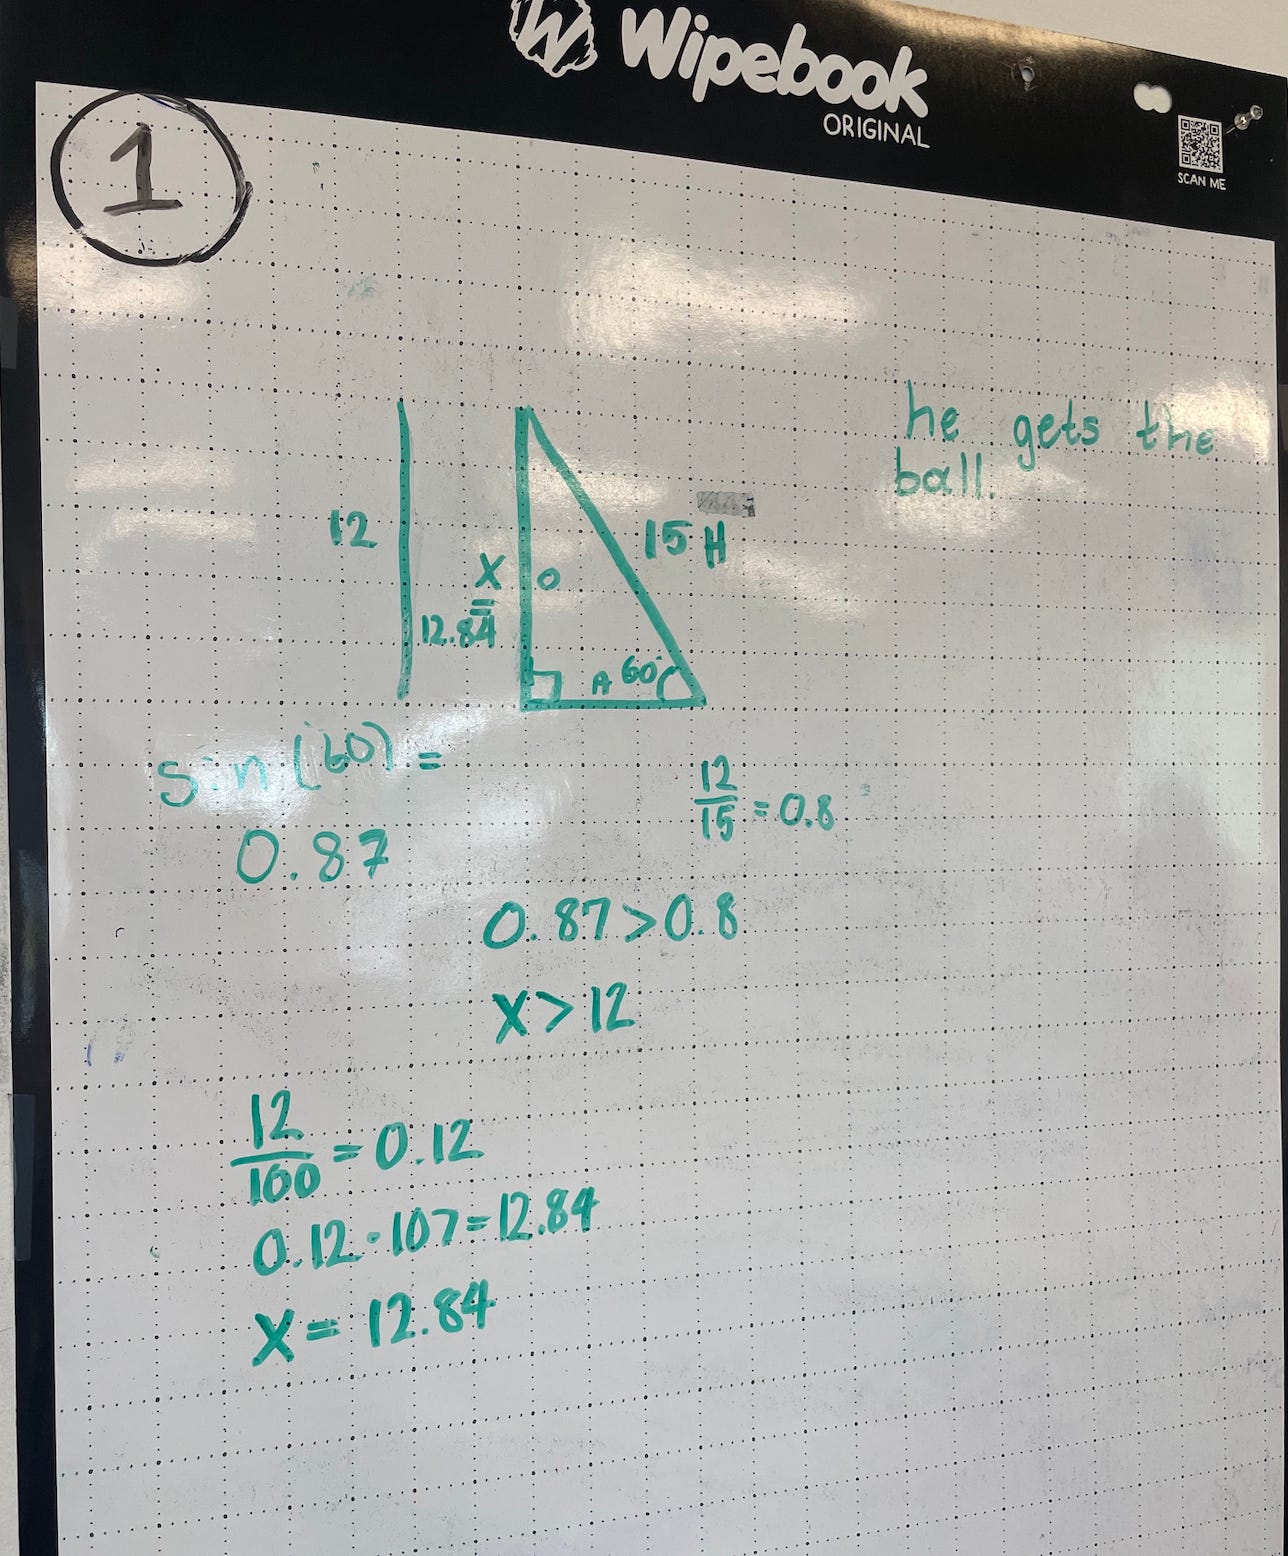 Wipebook
ORIGINAL
SCAN ME
1
he gets the
ball.
12
X
=
12.84
O
15 H
A 60°
sin(60) =
0.87
12
15 = 0.8
0.87 > 0.8
X > 12
12
100 = 0.12
0.12 · 107 = 12.84
X = 12.84